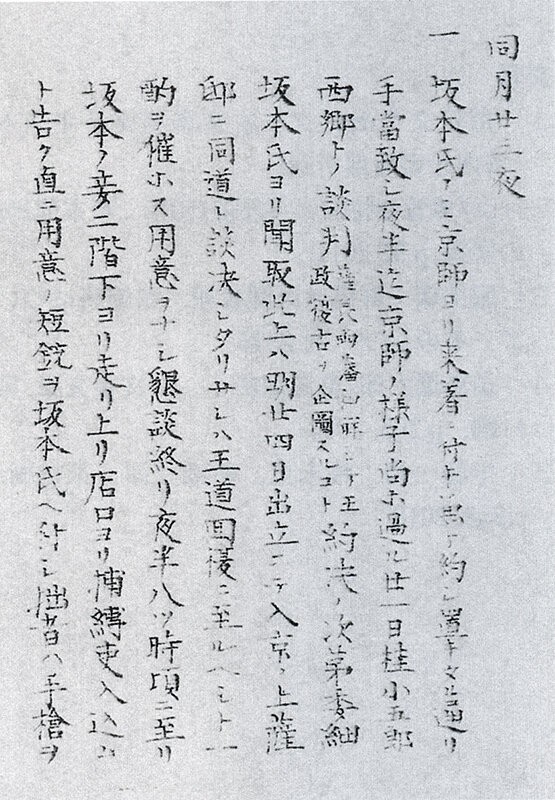 同月廿三夜
一 坂本氏ノミ京師ヨリ来着ニ付兼テ約シ置キタル通リ
手當致シ夜半迄京師ノ様子尚ホ過ル廿一日桂小五郎
西郷トノ談判薩長両藩和解シテ王政復古ヲ企圖スルコト約決ノ次第委細
坂本氏ヨリ聞取此上ハ明廿四日出立ニテ入京ノ上薩
邸ニ同道ト談決シタリサレハ王道回復ニ至ルヘシト一
酌ヲ催ホス用意ヲナシ懇談終リ夜半八ツ時頃ニ至リ
坂本ノ妾二階下ヨリ走リ上リ店口ヨリ捕縛吏入込ム
ト告ク直ニ用意ノ短銃ヲ坂本氏ヘ付シ拙者ハ手槍ヲ